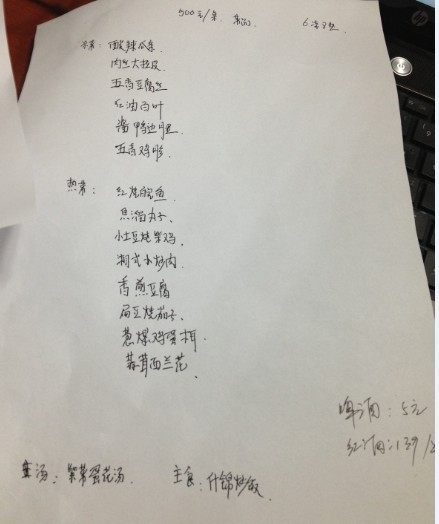 500元/桌
凉菜：酸辣瓜条
肉丝大拉皮
五香豆腐丝
红油百叶
酱鸭边腿
五香鸡胗
热菜：红烧鲶鱼
焦溜丸子、
小土豆烧柴鸡、
湘式小炒肉、
香煎豆腐
扁豆烧茄子、
葱爆鸡蛋木耳、
蒜茸西兰花、
啤酒：5元
红酒：139/
汤：紫菜蛋花汤、 主食：什锦炒饭、
hp